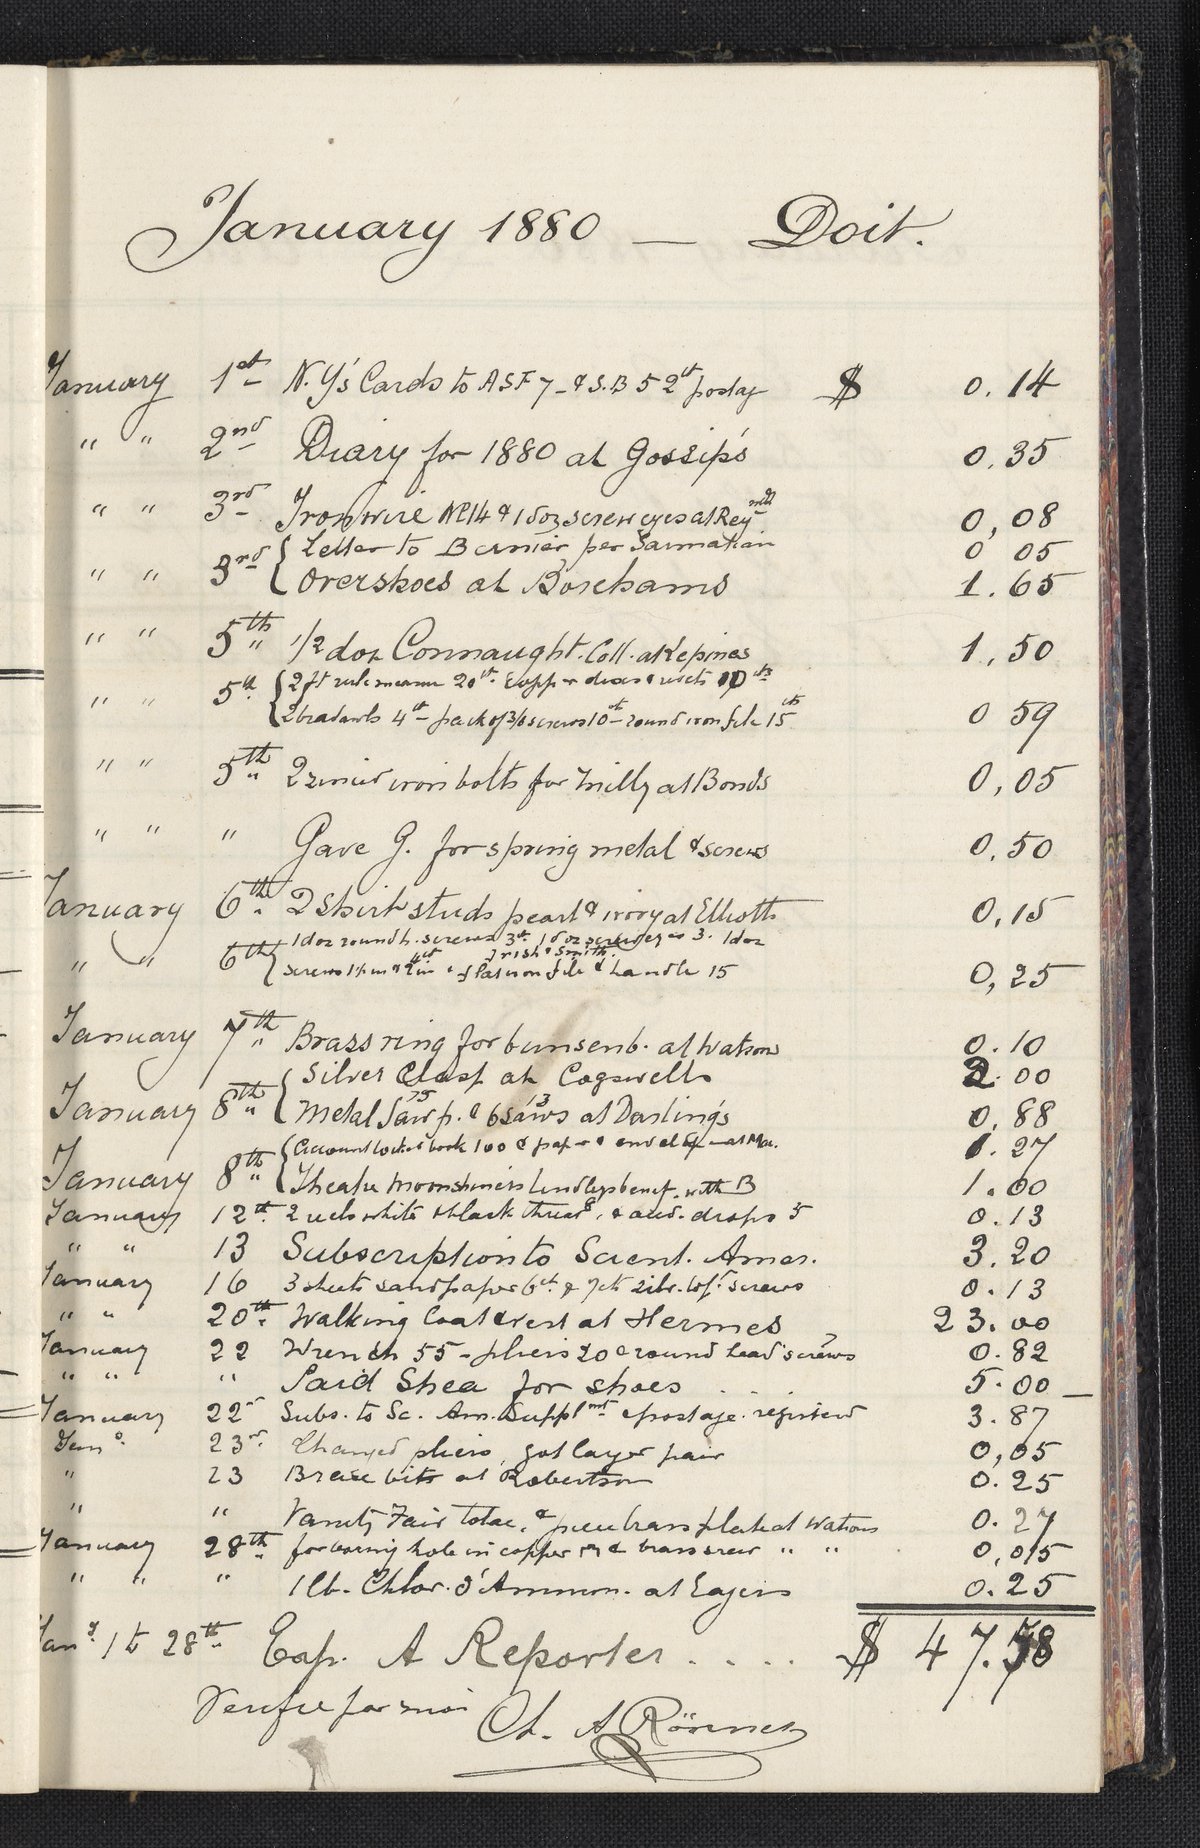 January 1880 — Doit.
January 1st N.Y's Cards to ASF 7 - & S.B 5 2ct postag $ 0.14
" " 2nd Diary for 1880 at Gossip's 0.35
" " 3rd Iron wire No 14 & 1 doz screw eyes at Rey 0,08
Letter to Bernier per Sarmatian 0 05
" " 3rd Overshoes at Borehams 1.65
" " 5th 1/2 doz Connaught. Coll. at Kepines 1,50
" " 5th 2 ft rule 20ct
2 bradawls 4ct - pack of 3/8 screws 10ct - round iron file 15cts 0 59
" " 5th 2 iron bolts for Milly at Bonds 0,05
" " " Gave G. for spring metal & screws 0.50
January 6th 2 shirt studs pearl & ivory at Elliotts 0,15
1 doz round h. screws 3ct. 1 doz screw eyes 3. 1 doz
Irish & Smith.
" " 6th screws & flat iron file & handle 15 0,25
January 7th Brass ring for bunsenb. at Watson 0.10
Silver Clasp at Cogswells 2.00
January 8th Metal Saw p. 75 & 6 saws 13 at Darling's 0,88
Account book 100 & paper & envelop - at Mor. 1.27
January 8th Theatre Moonshiners Lindleys benef. with B 1.00
January 12th 2 reels white & black thread 8, & acid. drops 5 0.13
" " 13 Subscription to Scient. Amer. 3.20
January 16 3 sheets sandpaper 6ct & 7ct screws 0.13
" " 20th Walking Coat & vest at Hermes 23.00
January 22 Wrench 55 - pliers 20 & round head screws 7 0.82
" " " Paid Shea for shoes . . . 5.00 —
January 22d Subs. to Sc. Am. Supplmt & postage registerd 3.87
Jano. 23rd. Changed pliers, got larger pair 0,05
" 23 Brace bits at Robertson 0.25
" " Vanity Fair tobac. & piece brass plate at Watsons 0.27
January 28th for boring hole in copper & brass screw " " 0,05
" " " 1 lb. Chlor. d'Ammon. at Eagers 0.25
Jany. 1 to 28th Exp. A Reporter . . . . $ 47.58
Verifié par moi
Ch. A Rönnez